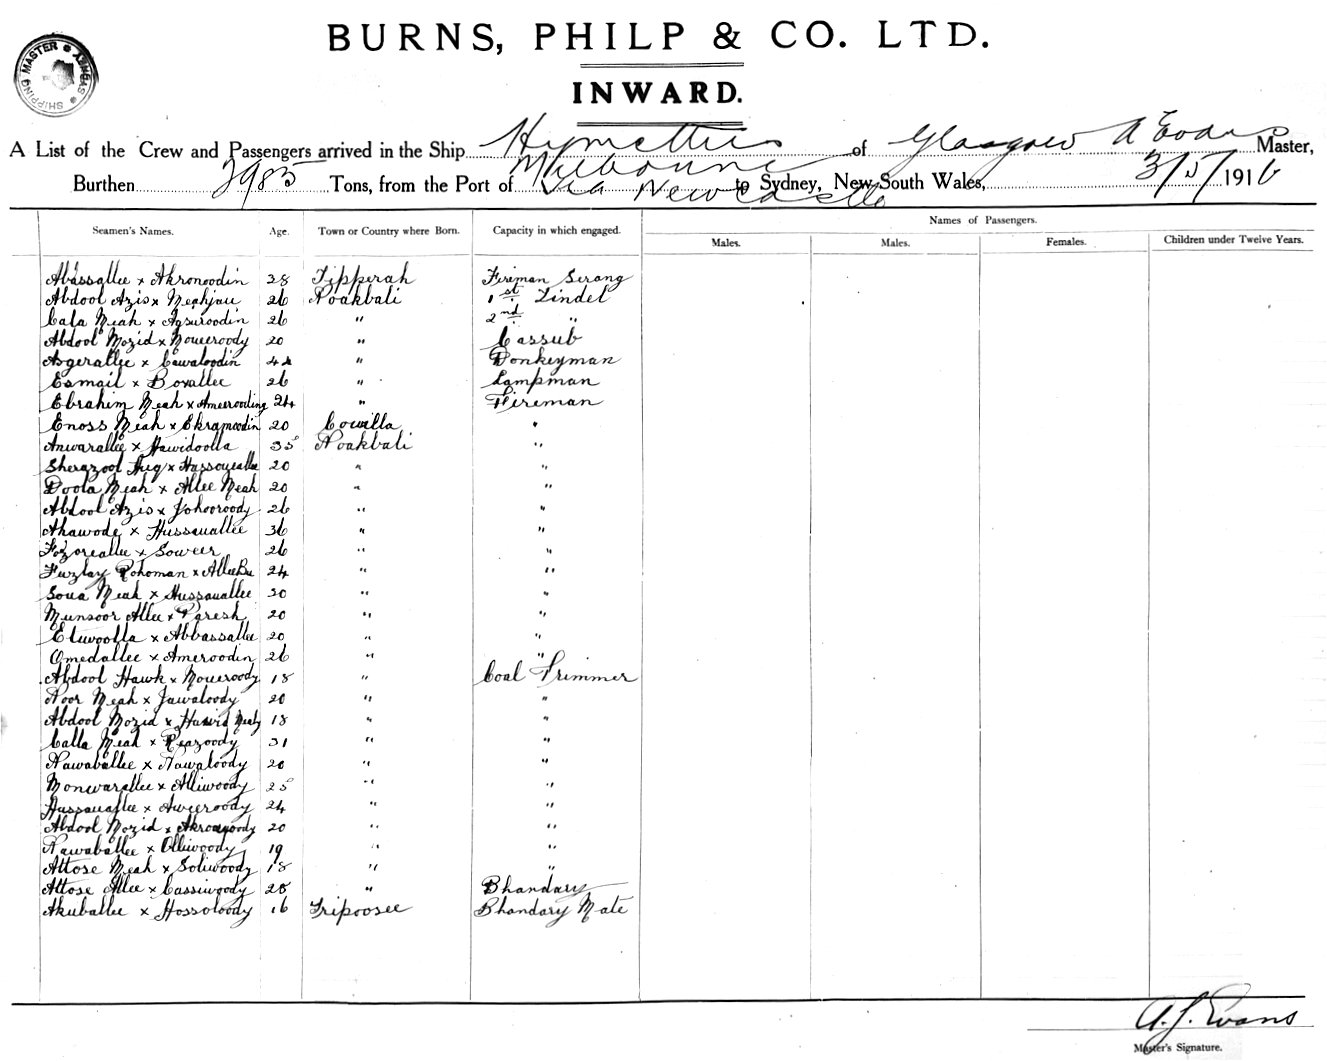 BURNS, PHILP & CO. LTD.
SHIPPING MASTER * SYDNEY *
INWARD.
A List of the Crew and Passengers arrived in the Ship Hymettus of Glasgow A Evans Master,
Burthen 2985 Tons, from the Port of Melbourne via Newcastle to Sydney, New South Wales, 3/5/1916
Names of Passengers.
Seamen's Names. Age. Town or Country where Born. Capacity in which engaged. Males. Males. Females. Children under Twelve Years.
Abassallee x Akronoodin 38 Tipperah Fireman Serang
Abdool Azis x Meahjan 26 Noakhali 1st Tindel
Cala Meah x 26 " 2nd "
Abdool Mozid x Noueroody 20 " Cassub
Asgerallee x Cawaloodin 44 " Donkeyman
Esmail x Boxallee 26 " Lampman
Ebrahim Meah x Ameerooding 24 " Fireman
Enoss Meah x Ekramoodin 20 Comilla "
Anwarallee x Hamidoolla 35 Noakhali "
Sherazool Huq x 20 " "
Doola Meah x Allee Meah 20 " "
Abdool Azis x Johooroody 26 " "
Ahawode x Hussanallee 36 " "
Fozoreallee x Soweer 26 " "
Fuzlay Rohoman x Allee Bu 24 " "
Sona Meah x Hussanallee 20 " "
Munsoor Allee x Paresh 20 " "
Eluwoolla x Abbassallee 20 " "
Omedallee x Ameroodin 26 " "
Abdool Hawk x Noueroody 18 " Coal Trimmer
Noor Meah x Jawaloody 20 " "
Abdool Mozid x Hamid Meah 18 " "
Calla Meah x Reazoody 31 " "
Nawaballee x Nawaloody 20 " "
Monwarallee x Alliwoody 25 " "
Hussanallee x Aweeroody 24 " "
Abdool Mozid x 20 " "
Nawaballee x Olliwoody 19 " "
Attose Meah x Soliwoody 18 " "
Attose Allee x Cassiwoody 28 " Bhandary
Akuballee x Hossoloody 16 Tripoosee Bhandary Mate
A. J. Evans
Master's Signature.